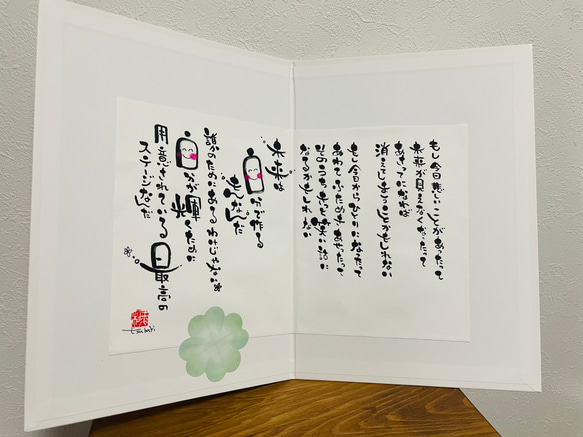 もし今日悲しいことがあったって
未来が見えなくなったって
あさってになれば
消えてしまうことかもしれない
もし今日からひとりになったって
あわてふためきあせったって
そのうちきっと笑い話に
なるかもしれない
未来は
自分で作る
もんなんだ
誰かのためにあるわけじゃない
自分が輝くために
用意されている最高の
ステージなんだ
tsubaki